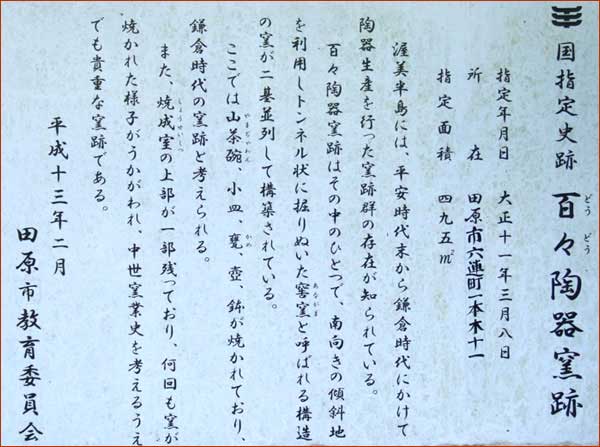 国指定史跡 百々陶器窯跡
どう どう
指定年月日 大正十一年三月八日
所在 田原市六連町一本木十一
指定面積 四九五㎡
渥美半島には、平安時代末から鎌倉時代にかけて
陶器生産を行った窯跡群の存在が知られている。
百々陶器窯跡はその中のひとつで、南向きの傾斜地
を利用しトンネル状に掘りぬいた窖窯と呼ばれる構造
あながま
の窯が二基並列して構築されている。
ここでは山茶碗、小皿、甕、壺、鉢が焼かれており、
やまぢゃわん かめ
鎌倉時代の窯跡と考えられる。
また、焼成室の上部が一部残っており、何回も窯が
しょうせいしつ
焼かれた様子がうかがわれ、中世窯業史を考えるうえ
でも貴重な窯跡である。
平成十三年二月
田原市教育委員会